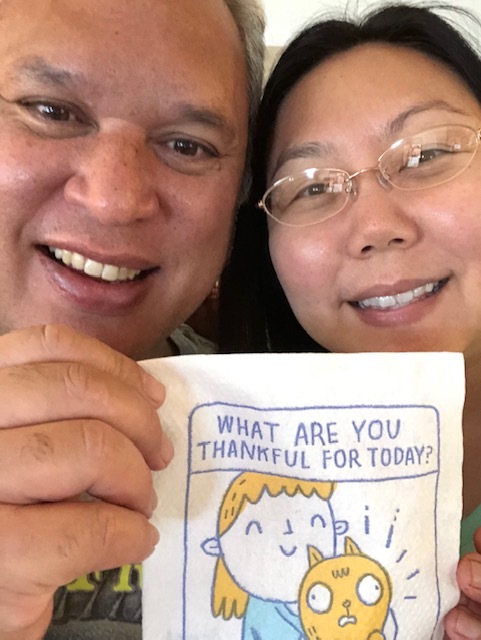 WHAT ARE YOU
THANKFUL FOR TODAY?